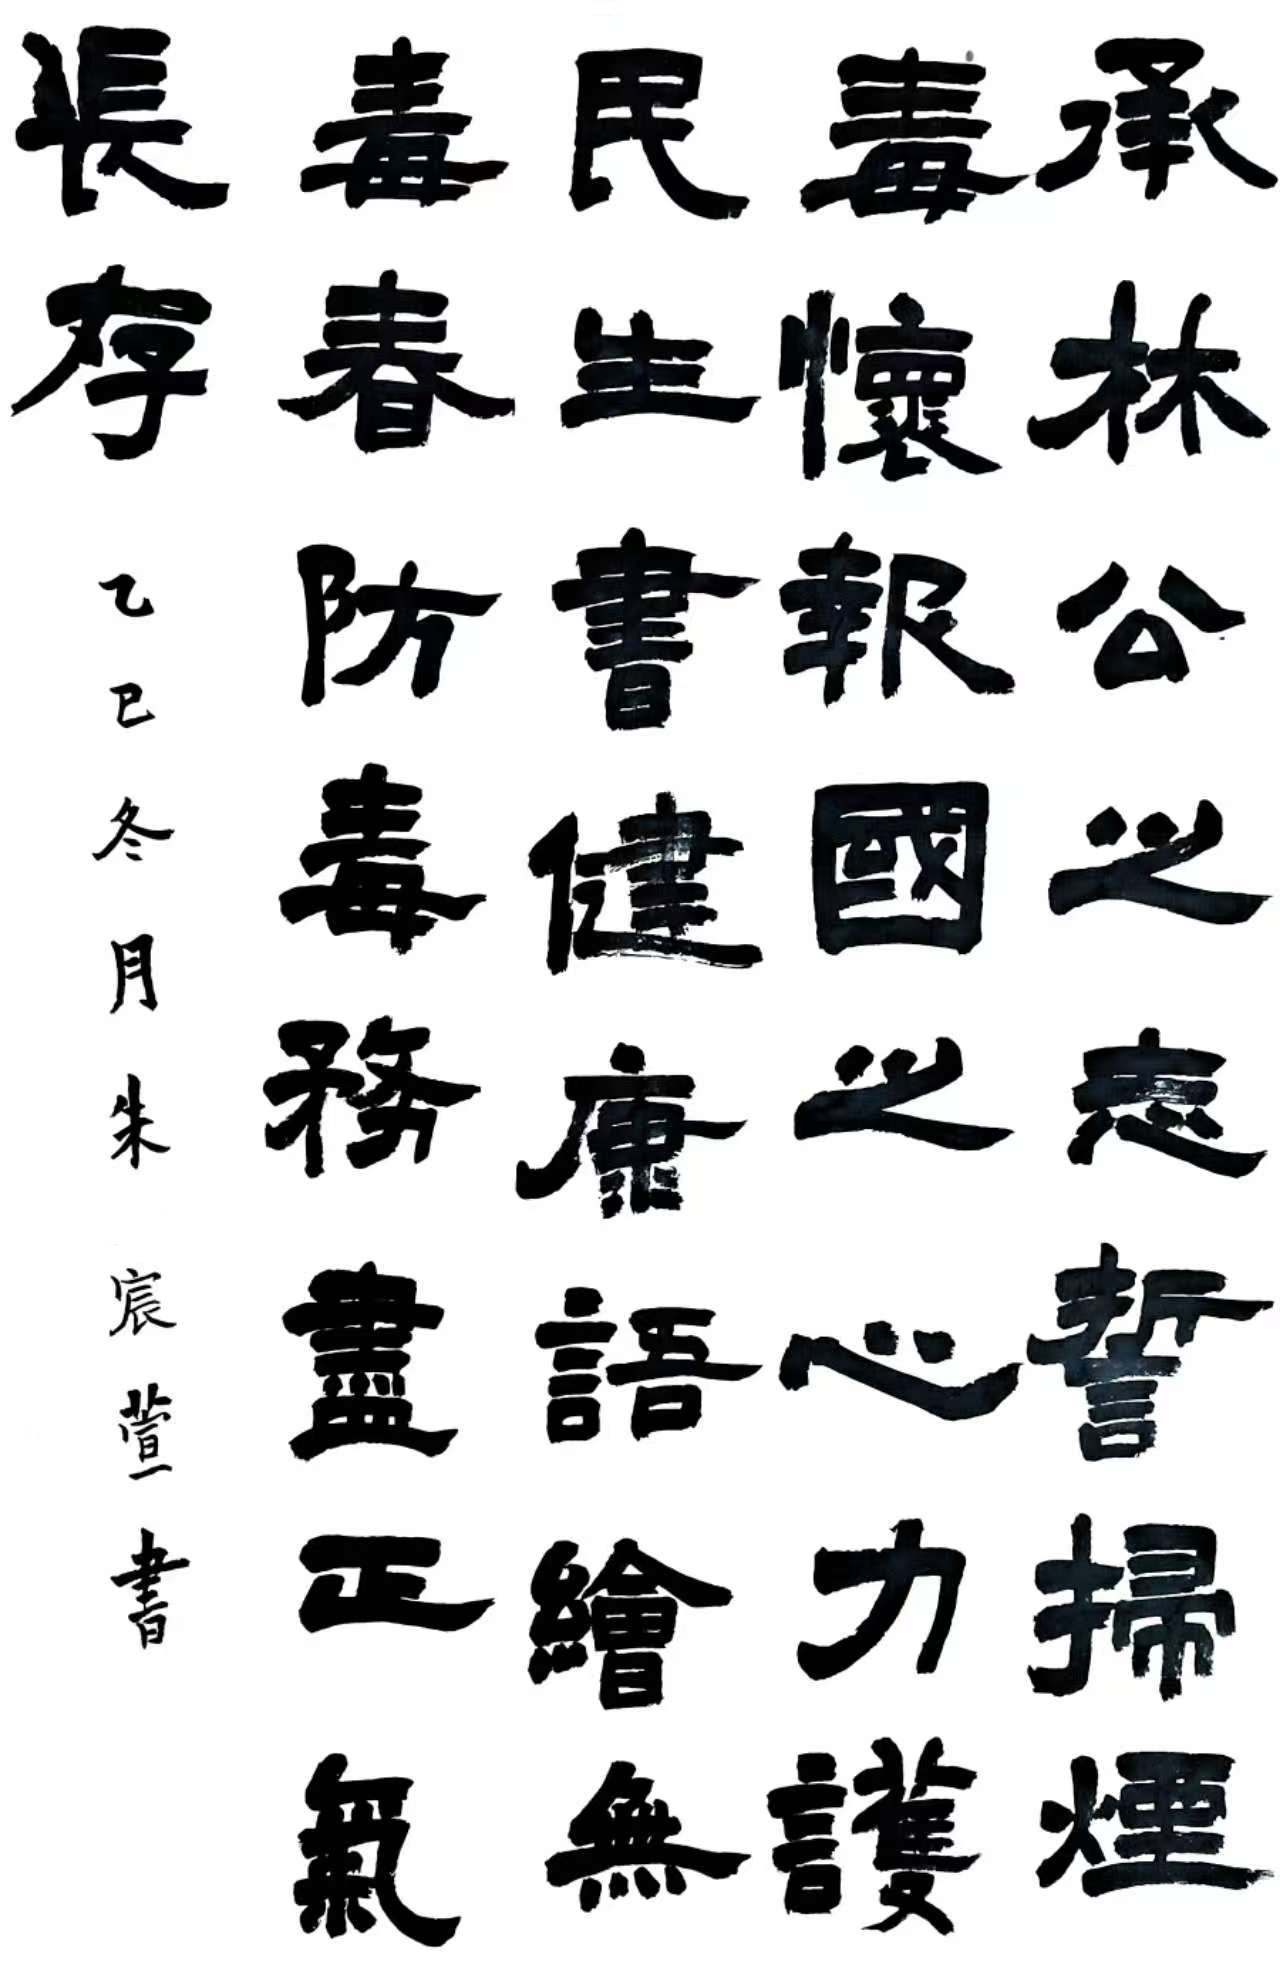 承林公之志誓掃煙
毒懷報國之心力護
民生書健康語繪無
毒春防毒務盡正氣
長存
乙巳冬月朱宸萱書